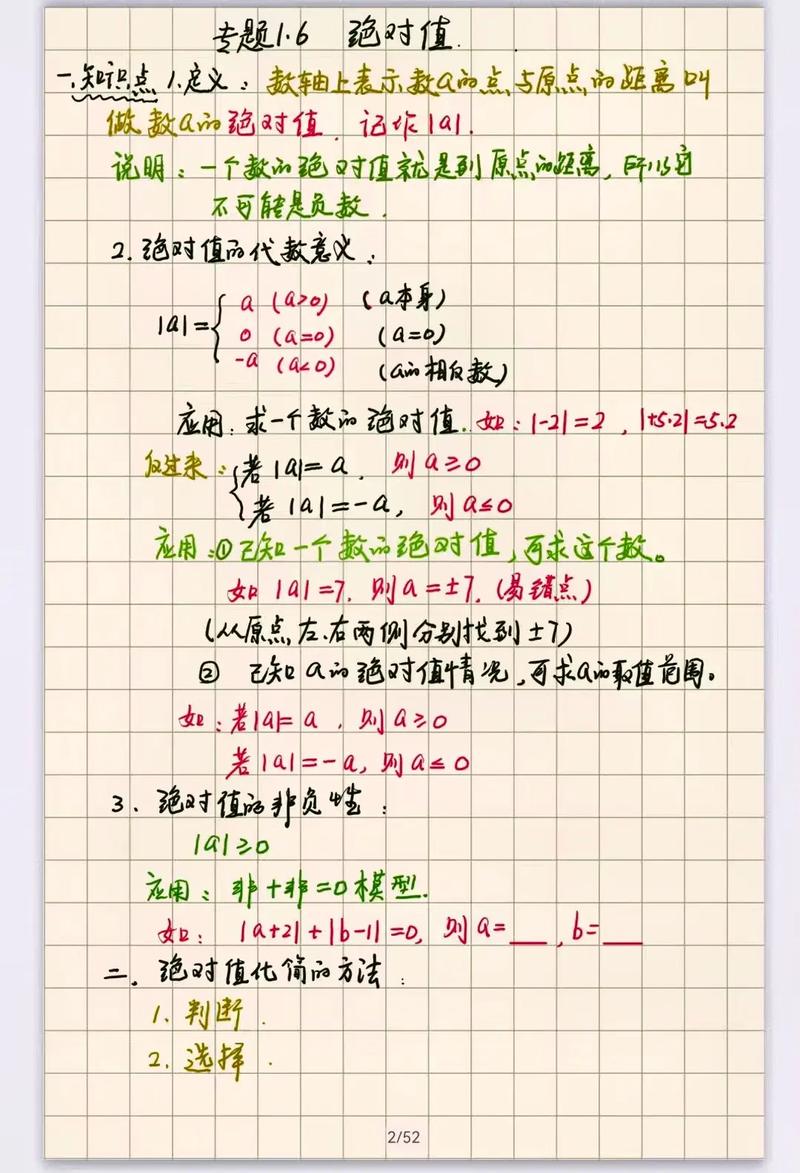 专题1.6 绝对值.
一.知识点 1.定义：数轴上表示数a的点与原点的距离叫
做数a的绝对值. 记作|a|.
说明：一个数的绝对值就是到原点的距离，所以它
不可能是负数.
2.绝对值的代数意义：
|a|={ a (a>0) (a本身)
0 (a=0) (a=0)
-a (a<0) (a的相反数)
应用：求一个数的绝对值. 如：|-2|=2，|+5.2|=5.2
反过来：{若|a|=a. 则a≥0
若|a|=-a，则a≤0
应用：①已知一个数的绝对值，可求这个数。
如|a|=7. 则a=±7. (易错点)
(从原点左、右两侧分别找到±7)
② 已知a的绝对值情况，可求a的取值范围。
如：若|a|=a，则a≥0
若|a|=-a，则a≤0
3. 绝对值的非负性：
|a|≥0
应用：非+非=0模型.
如：|a+2|+|b-1|=0, 则a=___，b=___
二. 绝对值化简的方法：
1. 判断.
2. 选择.
2/52